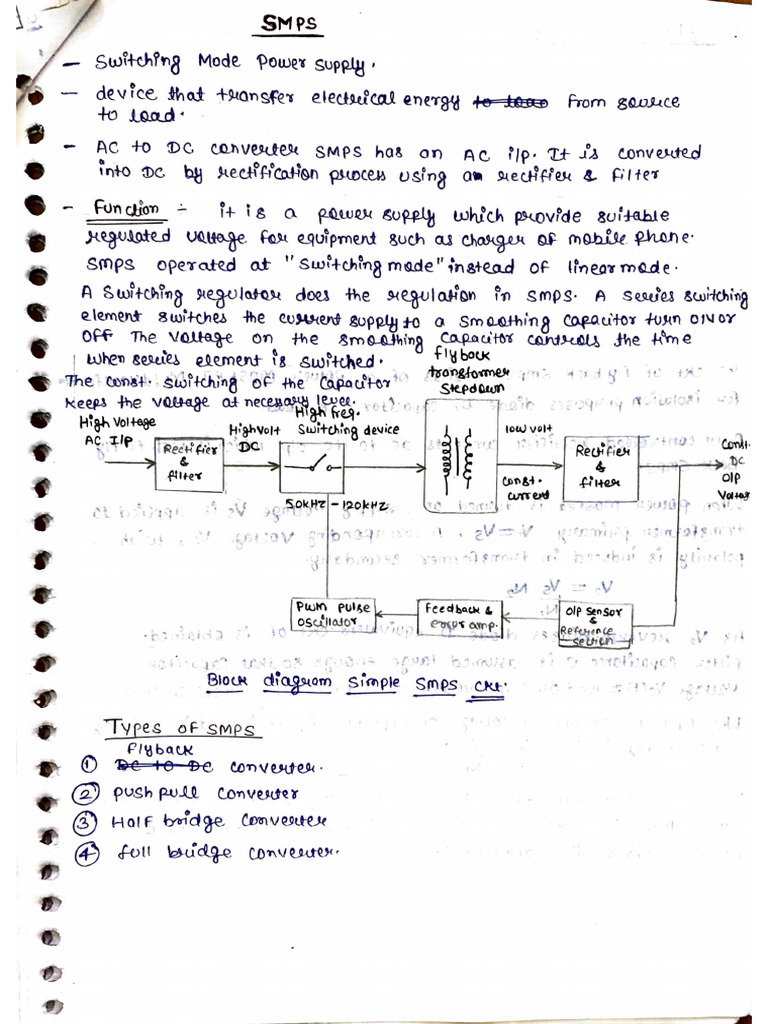 SMPS
- Switching Mode Power Supply.
- device that transfer electrical energy to load from source
to load.
- AC to DC converter SMPS has an AC i/p. It is converted
into DC by rectification process using an rectifier & filter
- Function :- it is a power supply which provide suitable
regulated voltage for equipment such as charger of mobile phone.
SMPS operated at "switching mode" instead of linear mode.
A Switching regulator does the regulation in SMPS. A series switching
element switches the current supply to a smoothing capacitor turn ON or
OFF The voltage on the smoothing capacitor controls the time
when series element is switched.
The const. switching of the capacitor
keeps the voltage at necessary level.
flyback
transformer
stepdown
High voltage
AC I/P
Rectifier
&
filter
High volt
DC
High freq.
Switching device
50kHz - 120kHz
low volt
const.
current
Rectifier
&
filter
Const.
DC
O/P
Voltage
PWM pulse
oscillator
Feedback &
error amp.
O/P sensor
&
Reference
section
Block diagram simple SMPS ckt.
Types of SMPS
flyback
① DC to DC converter.
② push pull converter
③ Half bridge converter
④ full bridge converter.